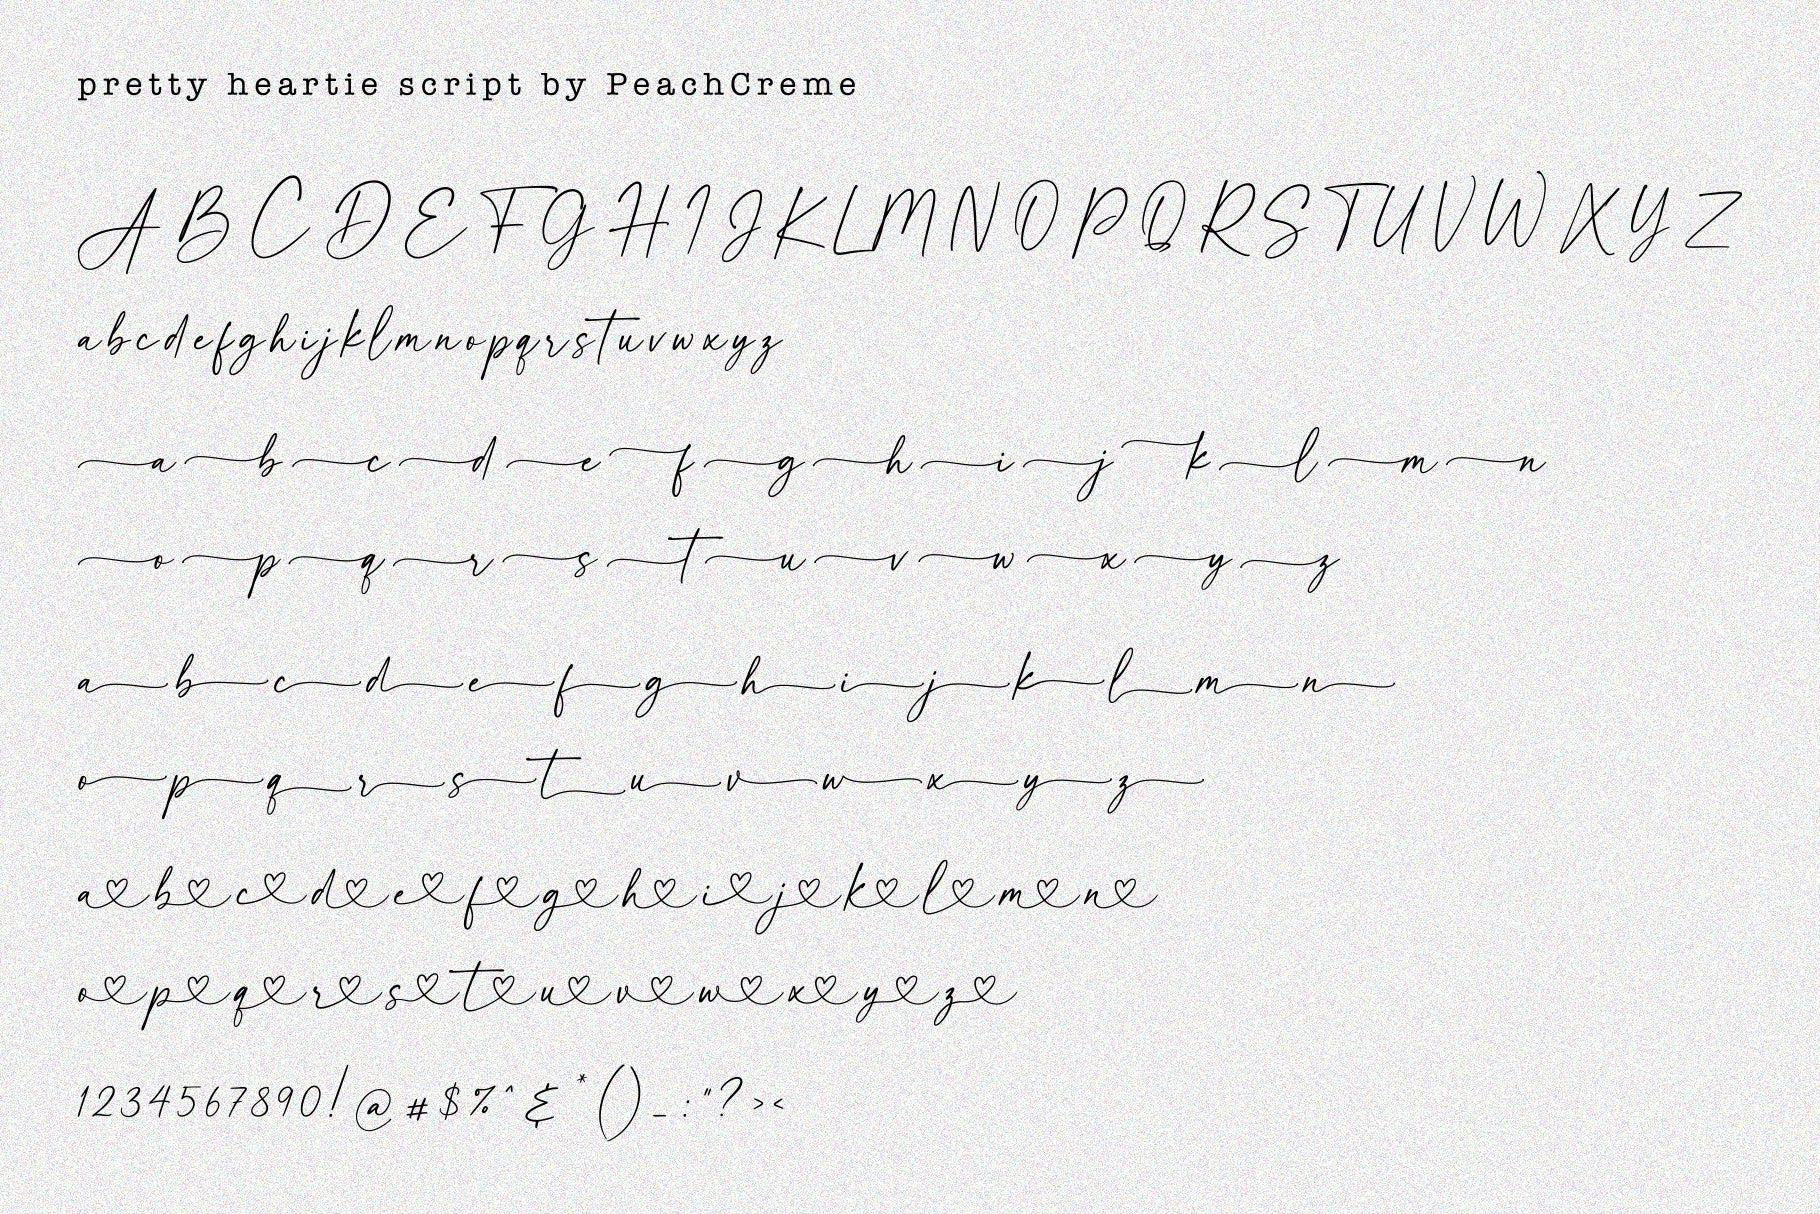 pretty heartie script by PeachCreme
ABCDEFGHIJKLMNOPQRSTUVWXYZ
abcdefghijklmnopqrstuvwxyz
a b c d e f g h i j k l m n
o p q r s t u v w x y z
a b c d e f g h i j k l m n
o p q r s t u v w x y z
a♡b♡c♡d♡e♡f♡g♡h♡i♡j♡k♡l♡m♡n♡
o♡p♡q♡r♡s♡t♡u♡v♡w♡x♡y♡z♡
1234567890!@#$%^&*()_:"?><